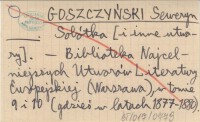 GOSZCZYŃSKI Seweryn
Sobótka [i inne utwo-
ry]. — Biblioteka Najcel-
niejszych Utworów Literatury
Europejskiej (Warszawa), w tomie
9 i 10 (gdzieś w latach 1877-1882).